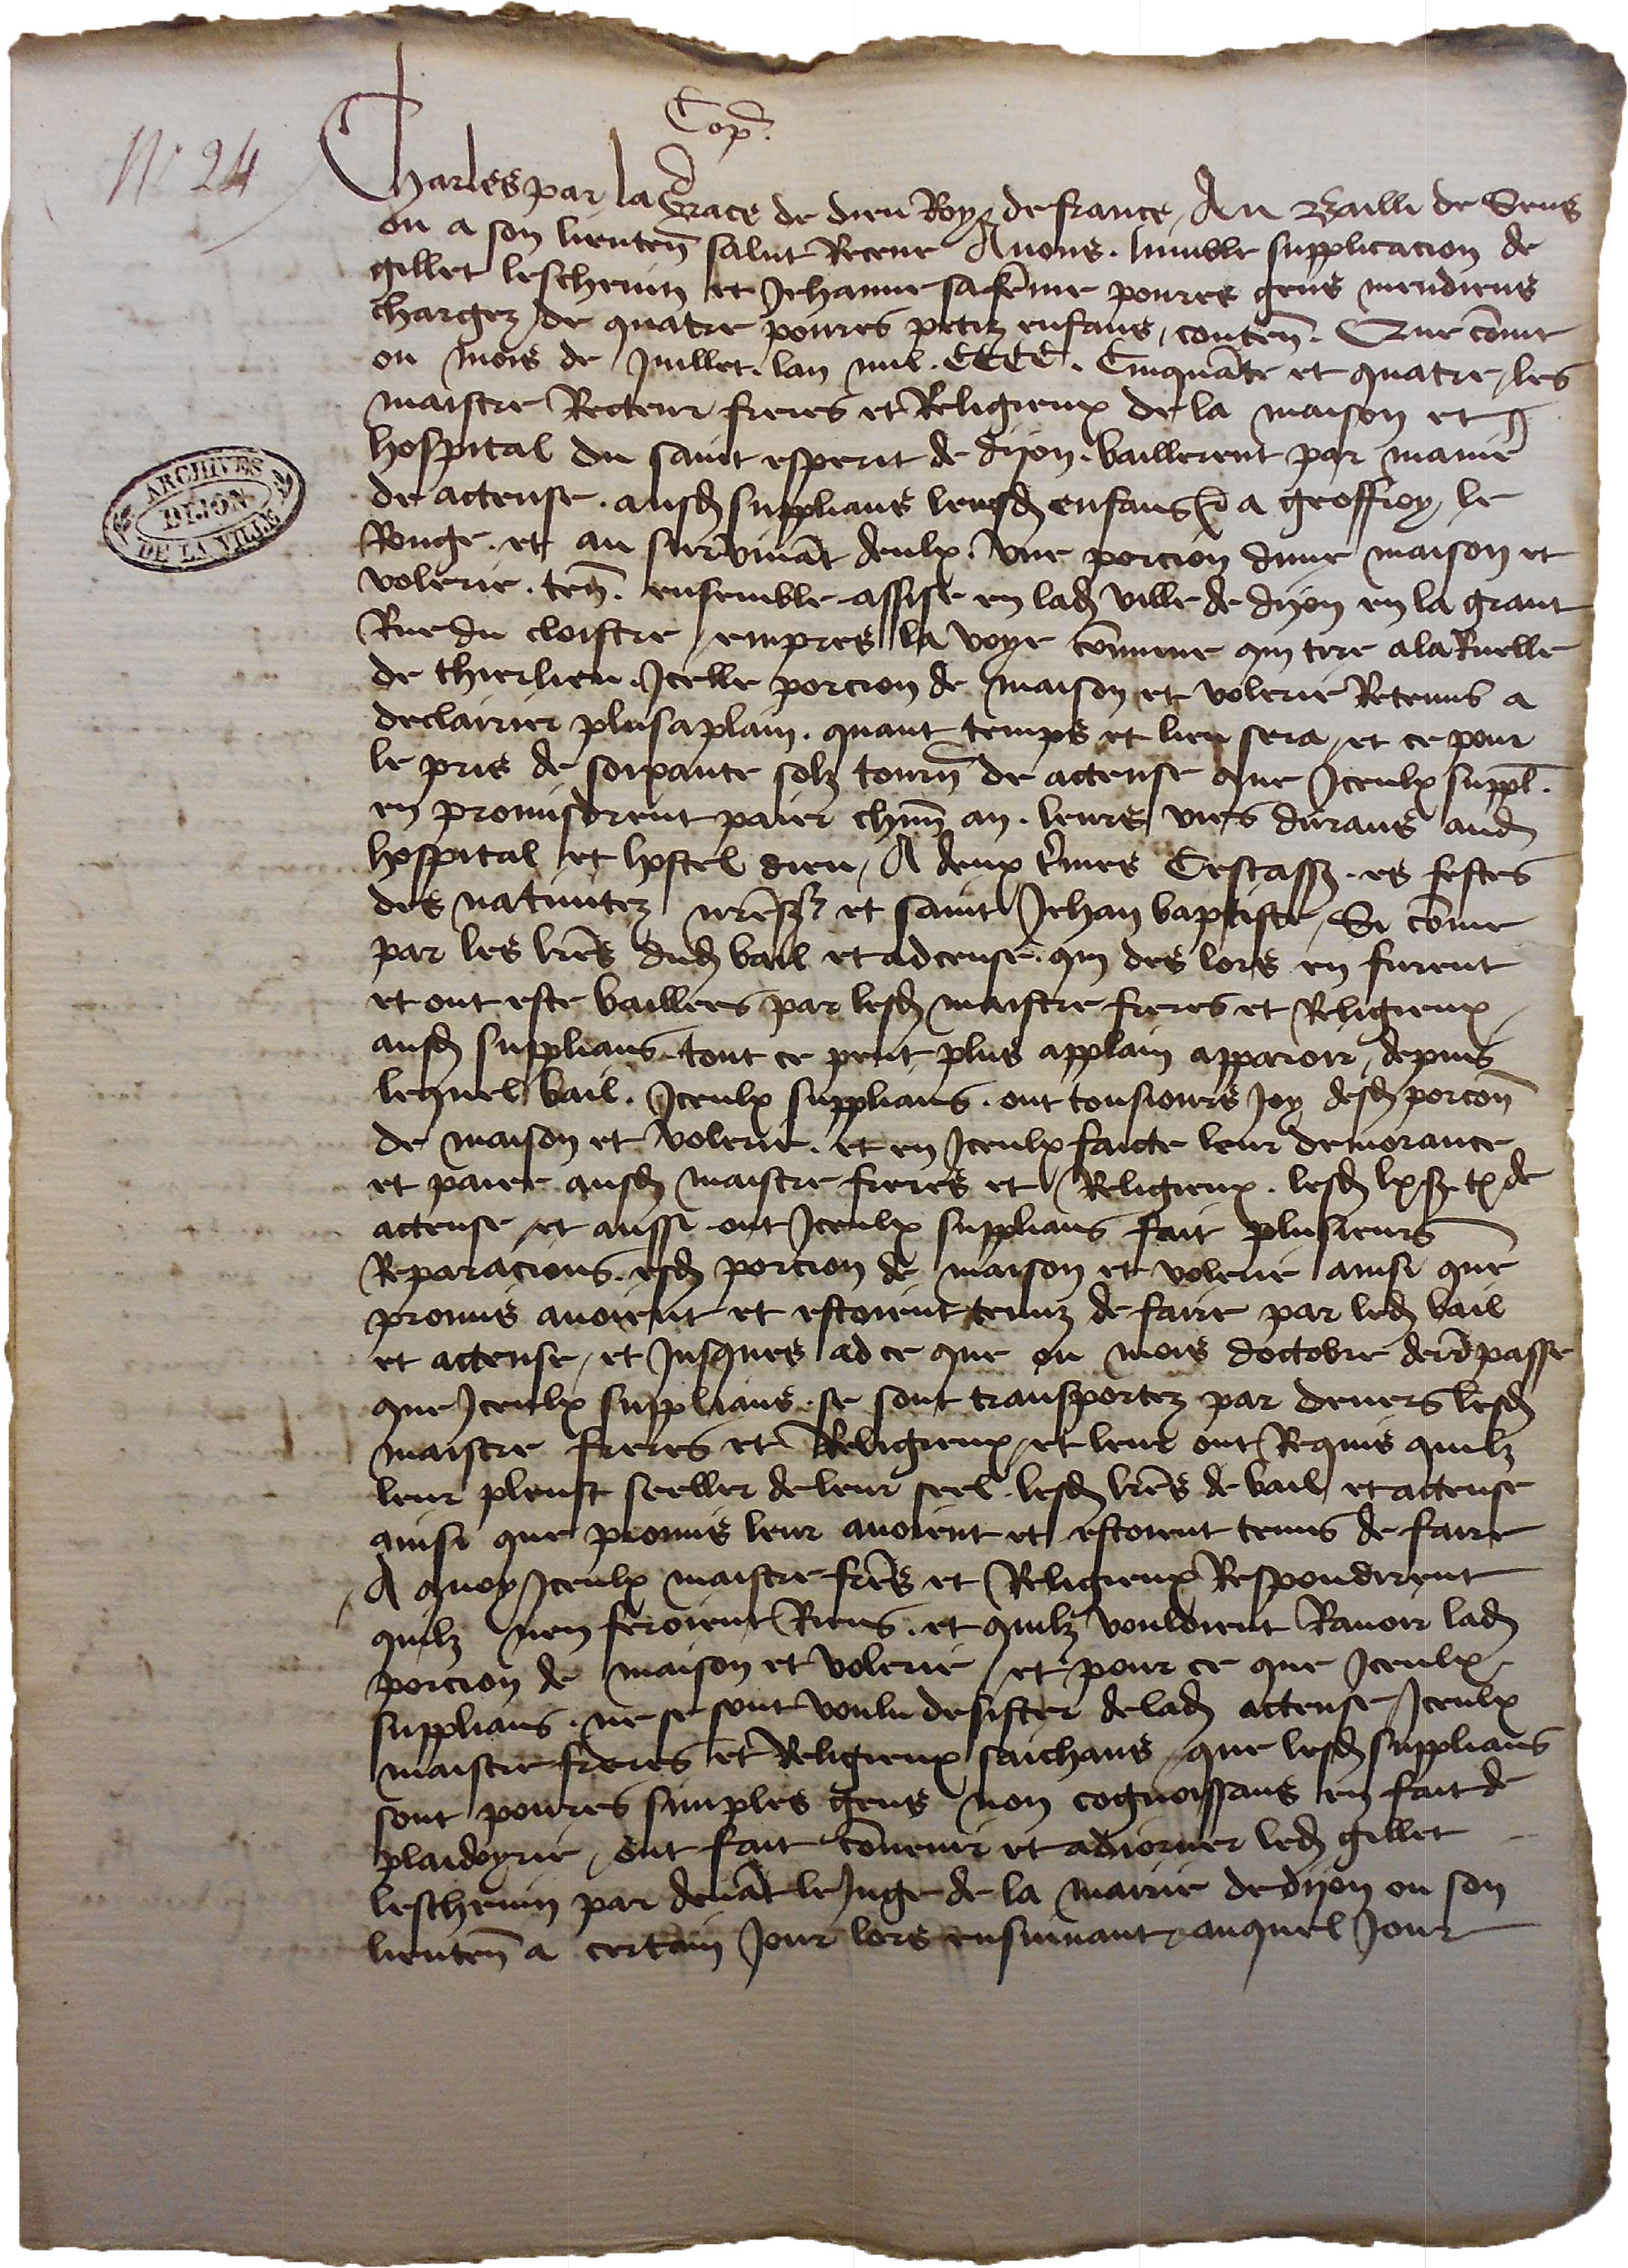 Cop.
N° 24
Charles par la grace de dieu Roy de france, Au Bailli de Sens
ou a son lieuten salut Receue Avons. lumble supplicacion de
gillet leschevin et Jehanne sa feme povres gens mendiens
chargez de quatre povres petiz enfans, conten. Que come
ou mois de Juillet. lan mil. CCCC. Cinquate et quatre, les
maistre Recteur freres et Religieux de la maison et
hospital du saint esperit de dijon. baillerent par manie
de accense. ausd supplians leursd enfans et a geoffroy le
Rouge. et au survivat deulx. Une porcion dune maison et
volerie. ten. ensemble assise en lad ville de dijon en la grant
Rue du cloistre, empres la voye comune qui tire a la Ruelle
de thierlieu. Icelle porcion de maison et volerie Retenus a
declairier plus a plain. quant temps et lieu sera, et ce pour
le pris de soixante solz tourn de accense que Iceulx suppl.
en promisdrent paier chun an. leurs vies durans aud
hospital et hostel dieu, A deux t'mes Cestass. es festes
des nativitez nre sr et saint Jehan baptiste, Si come
par les lres dud bail et adcense. qui des lors en furent
et ont este baillees par lesd maistre freres et Religieux
ausd supplians. tout ce peut plus applain apparoir, depuis
lequel bail. Iceulx supplians. ont tousiours Joy desd porcon
de maison et volerie. et en Iceulx faicte leur demorance
et paier ausd maistre freres et Religieux. lesd lx s. tx de
accense, et aussi ont Iceulx supplians fait plusieurs
Reparacions. esd porcion de maison et volerie ainsi que
promis avoient et estoient tenuz de faire par led bail
et accense, et Jusques ad ce que ou mois doctobre derr passe
que Iceulx supplians. se sont transportez par devers lesd
maistre freres et Religieux, et leur ont Requis quilz
leur pleust seeller de leur seel. lesd lres de bail et accense
ainsi que promis leur avoient et estoient tenus de faire
A quoy Iceulx maistre fres et Religieux Respondirent
quilz nen feroient Riens. et quilz vouloient Ravoir lad
porcion de maison et volerie, et pour ce que Iceulx
supplians. ne se sont voulu desister de lad accense, Iceulx
maistre freres et Religieux saichans, que lesd supplians
sont povres simples gens non cognoissans en fait de
plaidoyrie, ont fait convenir et adiorner led gillet
leschevin par devat le Juge de la mairie de dijon ou son
lieuten a certain Jour lors ensuivant, auquel Jour
ARCHIVES
DIJON
DE LA VILLE